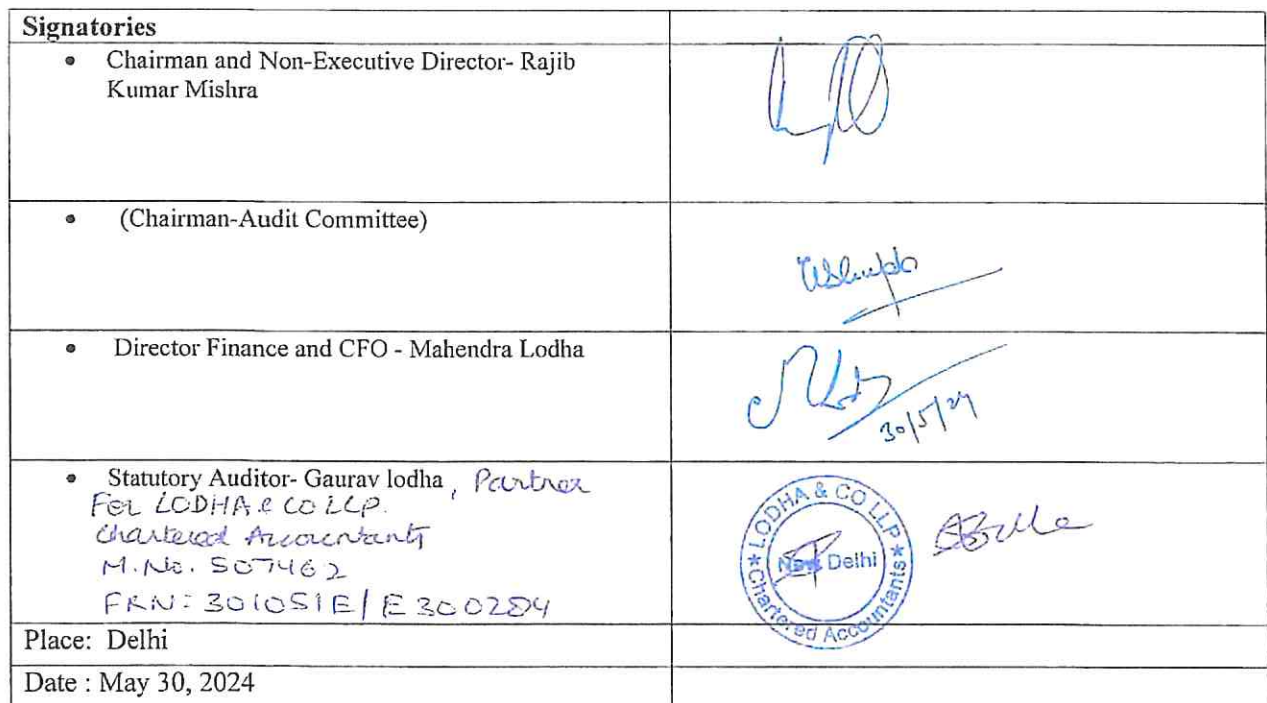 Signatories
• Chairman and Non-Executive Director- Rajib
Kumar Mishra
• (Chairman-Audit Committee)
• Director Finance and CFO - Mahendra Lodha
30/5/24
• Statutory Auditor- Gaurav lodha, Partner
For LODHA & CO LLP.
Chartered Accountants
M.No. 507462
FRN: 301051E/E300284
LODHA & CO LLP
New Delhi
Chartered Accountants
Place: Delhi
Date : May 30, 2024